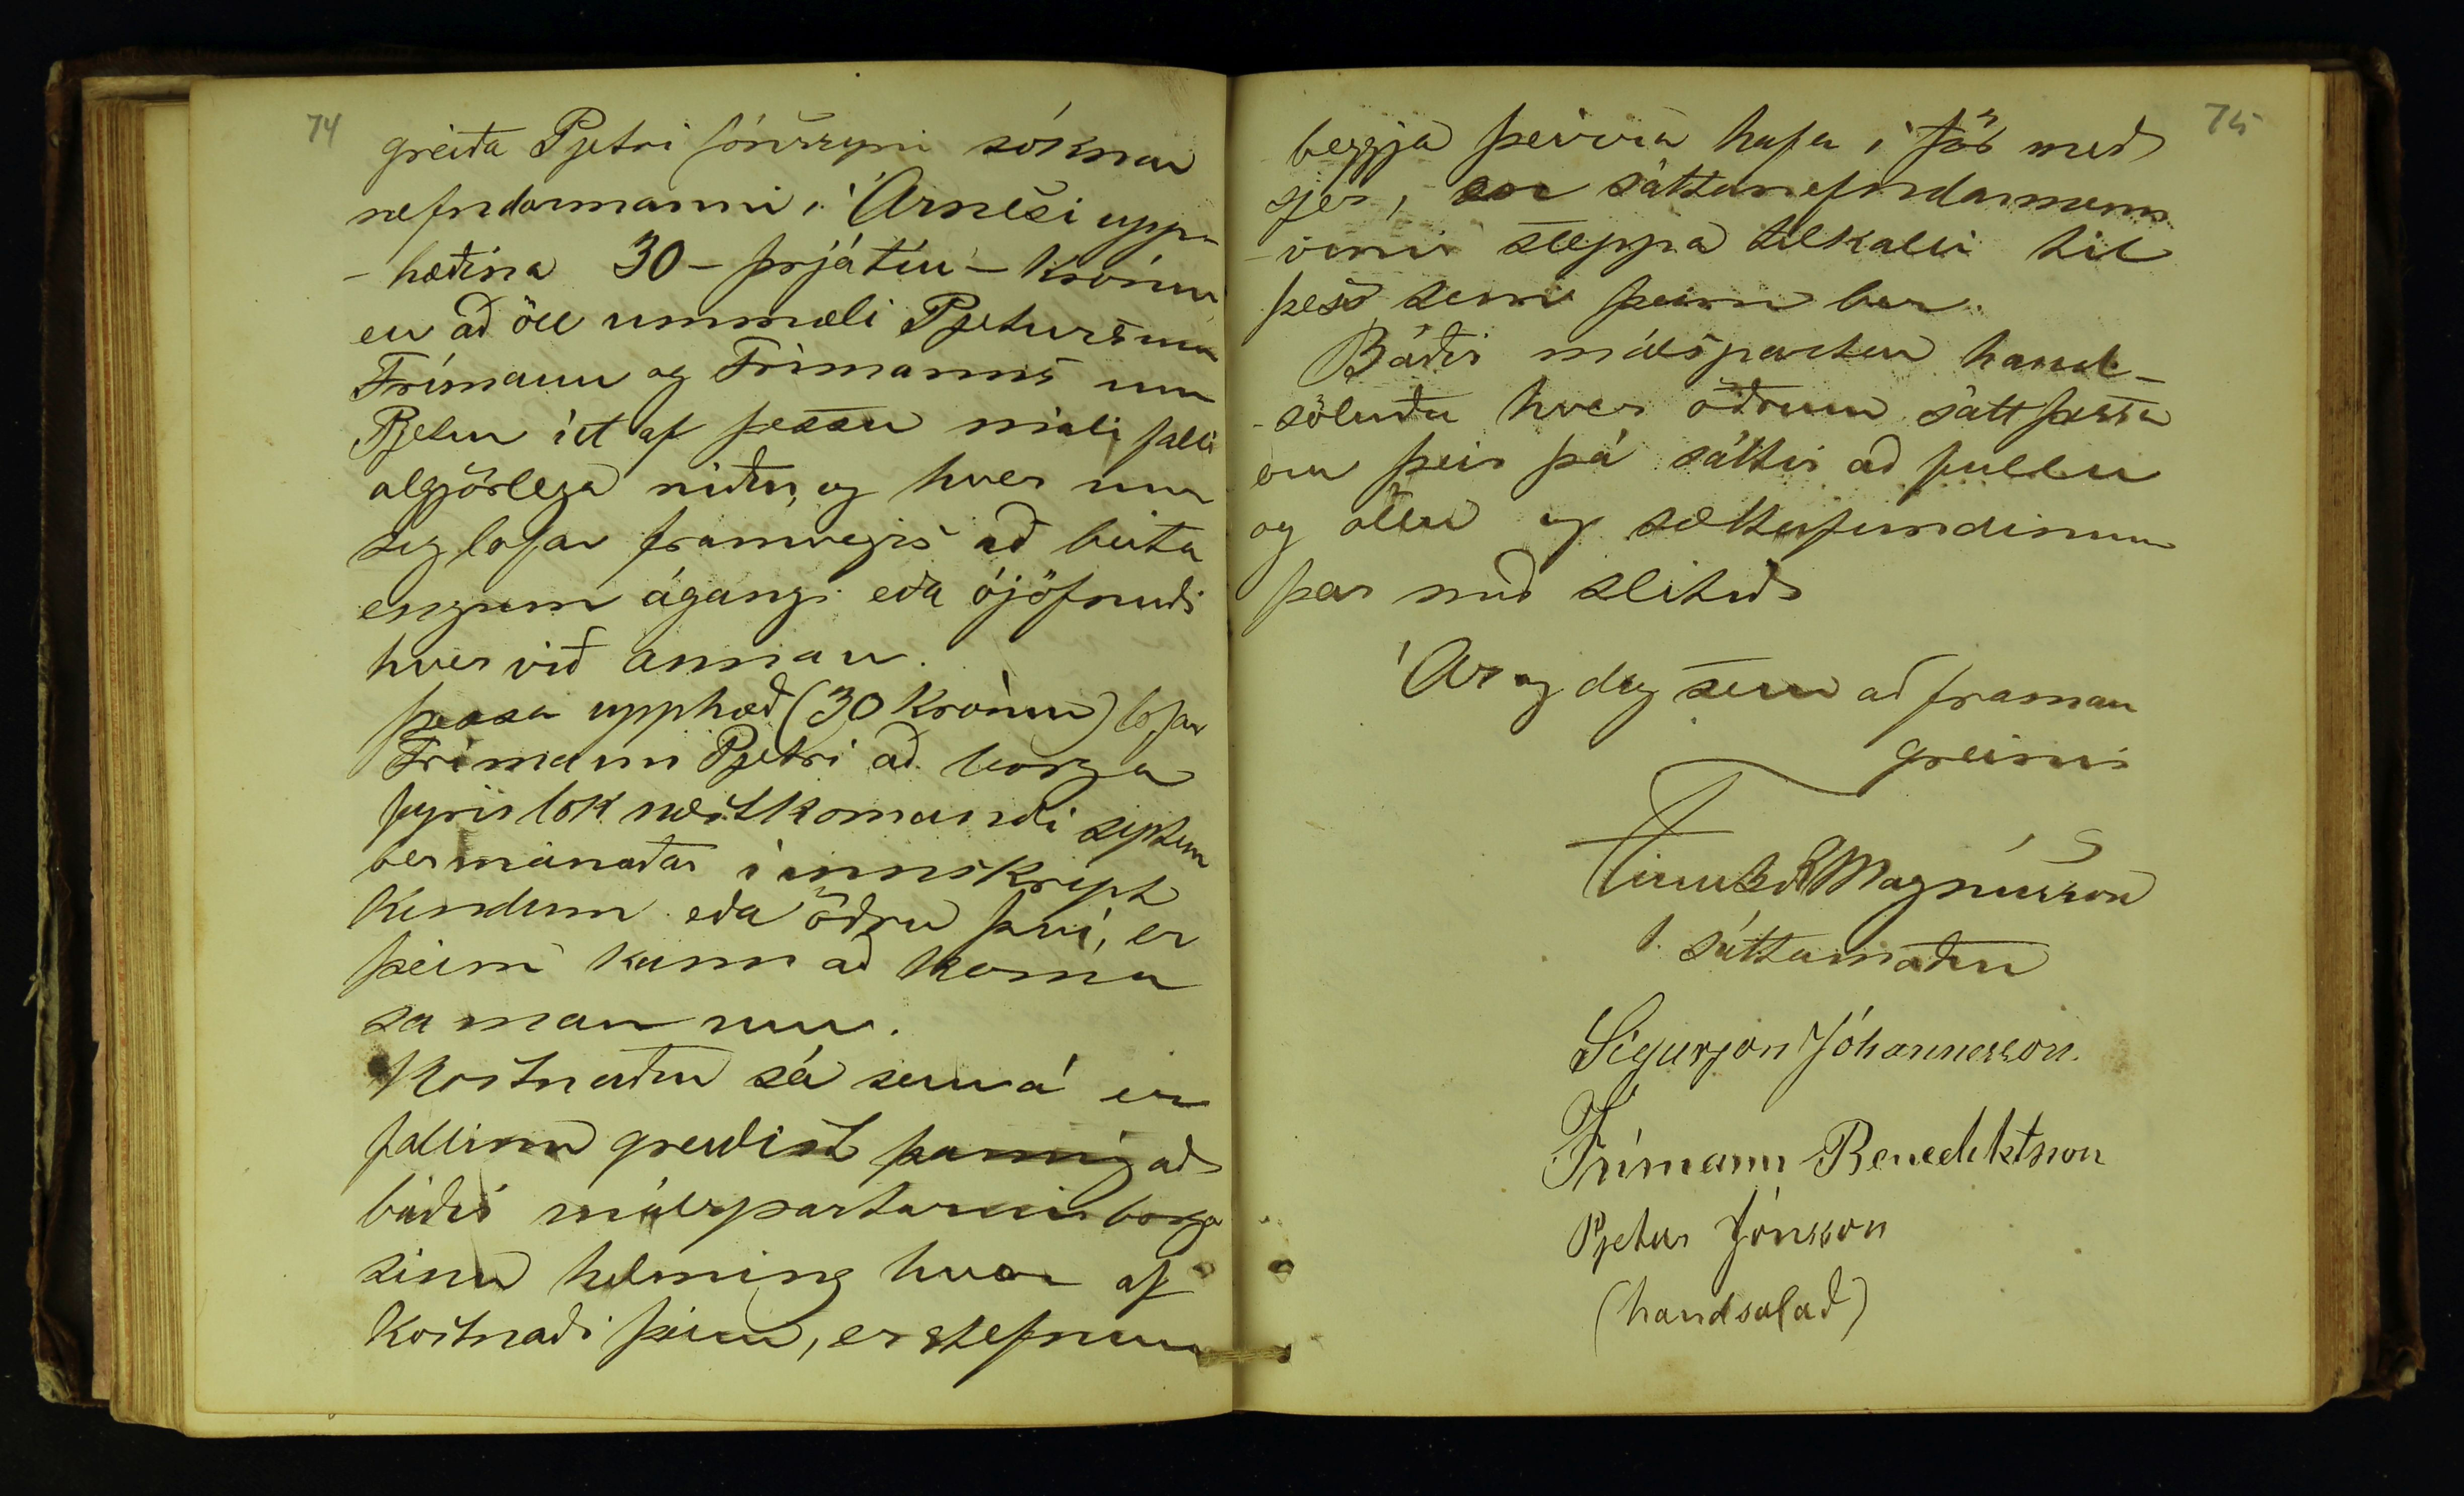 74
greiða Pjetri Jónssyni sóknar
nefndarmanni í Árnesi upp-
-hæðina 30 - þrjátíu - krónur
en að öll ummæli Pjeturs um
Frímann og Frímanns um
Pjetur út af þessu máli falli
algjörlega niður, og hver um
sig lofar framvegis að beita
engum ágangi eða ójöfnuði
hver við annan.
Þessa upphæð (30 krónur) lofar
Frímann Pjetri að borga
fyrir lok næstkomandi septem
bermánaðar í innskript
kindum eða öðru því, er
þeim kann að koma
saman um.
Kostnaður sá sem á er
fallinn greiðist þannig að
báðir málspartarnir borga
sinn helming hvor af
kostnaði þeim, er stefnur
75
beggja þeirra hafa í för með
sjer, en sáttanefndarmenn
-irnir sleppa tilkalli til
þess sem þeim ber.
Báðir málspartar hand-
-söluðu hver öðrum sátt þessa
eru þeir þá sáttir að fullu
og öllu og sáttafundinum
þar með slitið
Ár og dag sem að framan
greinir
Magnússon
sáttamaður
Sigurjón Jóhannesson.
Frímann Benediktsson
Pjetur Jónsson
(handsalað)